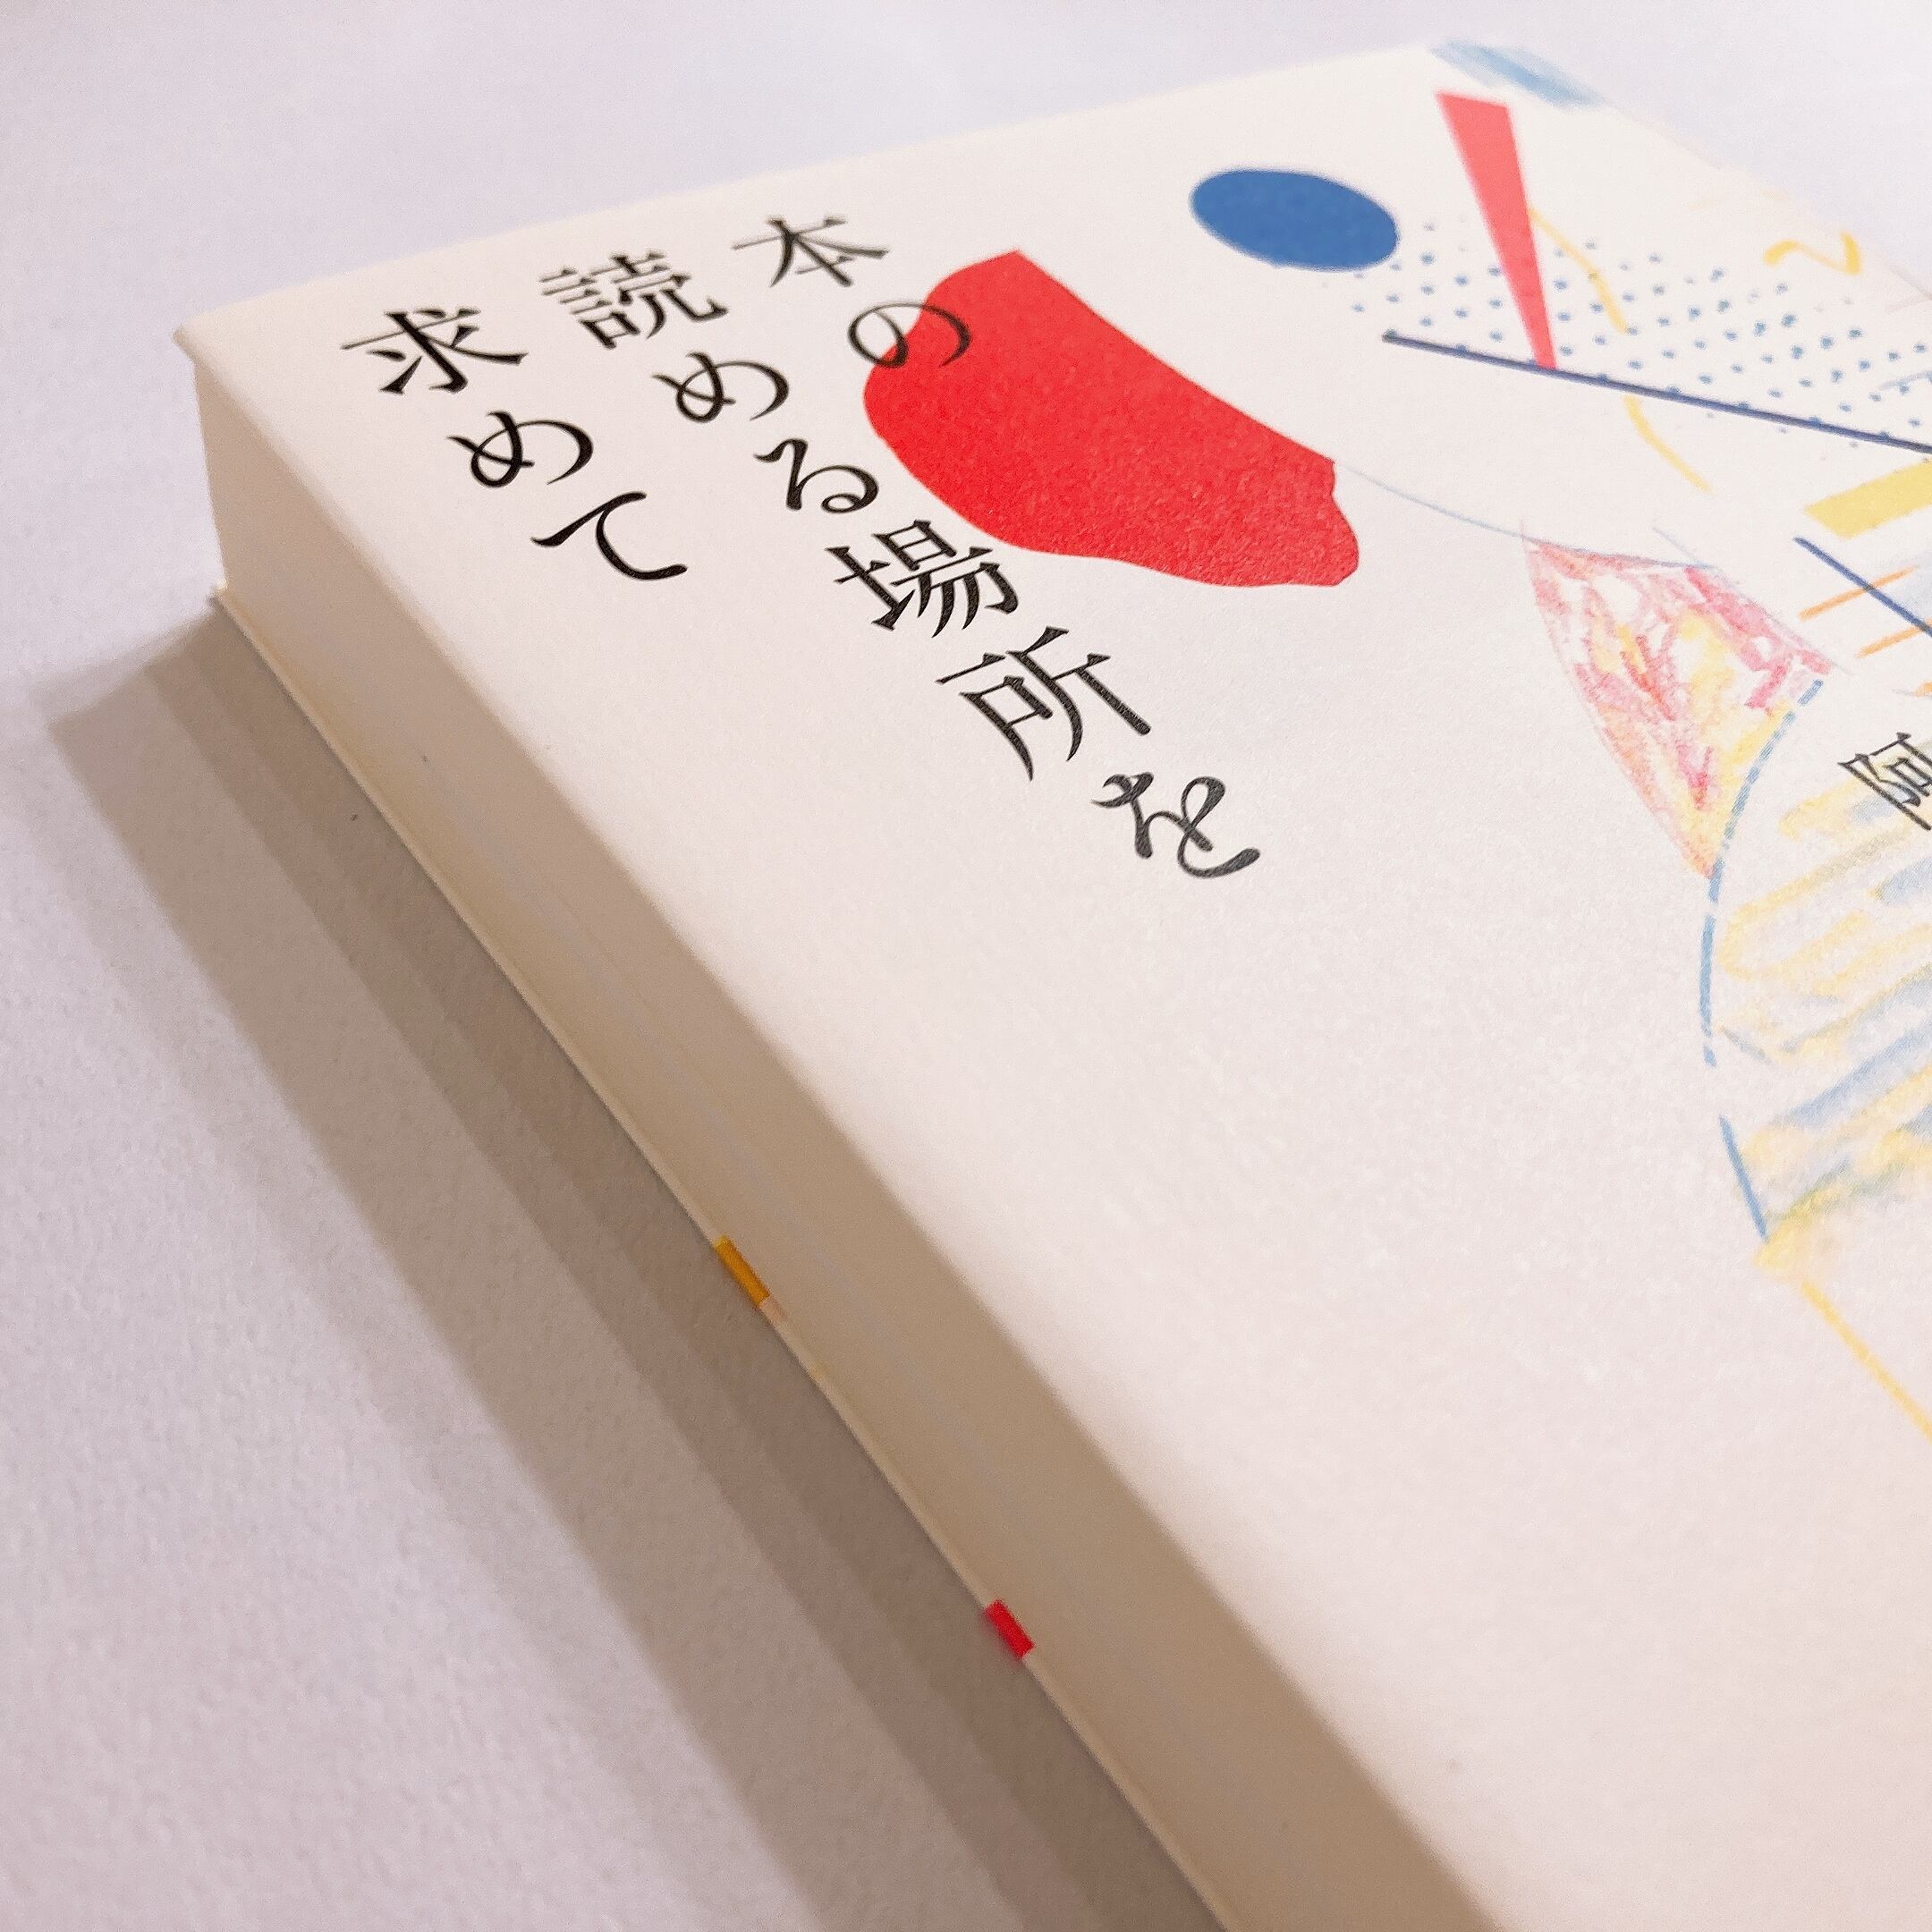 本の
読める場所を
求めて
阿